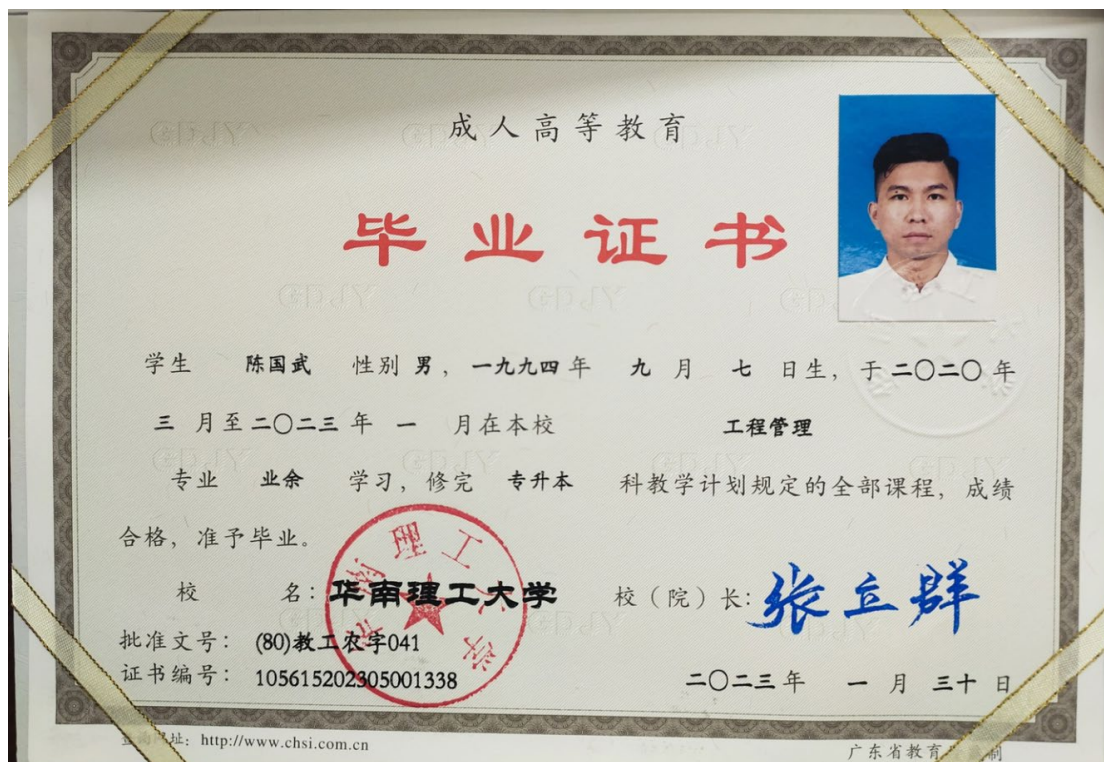 成人高等教育
毕业证书
学生 陈国武 性别 男，一九九四年 九 月 七 日生，于二〇二〇年
三 月至二〇二三年 一 月在本校 工程管理
专业 业余 学习，修完 专升本 科教学计划规定的全部课程，成绩
合格，准予毕业。
校 名：华南理工大学 校（院）长：张立群
华南理工大学
批准文号：(80)教工农字041
证书编号：105615202305001338 二〇二三年 一 月 三十 日
网址：http://www.chsi.com.cn 广东省教育 制
GDJY